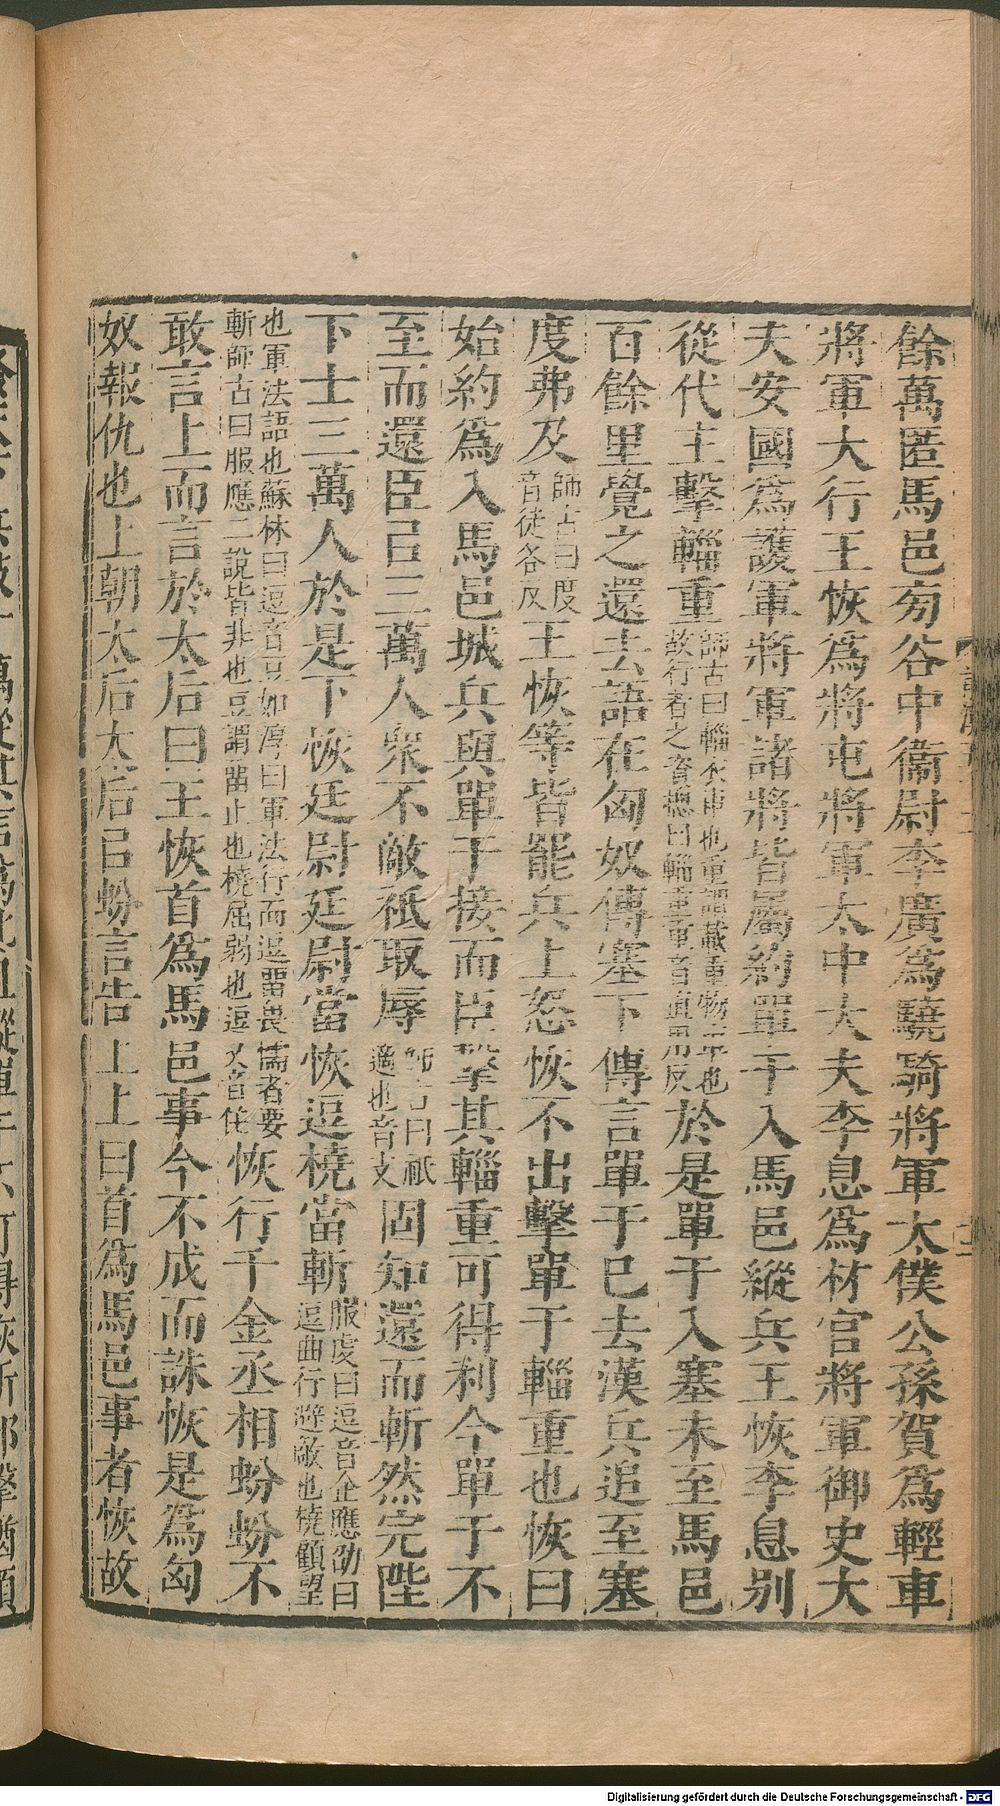 餘萬匿馬邑㫄谷中衞尉李廣爲驍騎將軍太僕公孫賀爲輕車
將軍大行王恢爲將屯將軍太中大夫李息爲材官將軍御史大
夫安國爲護軍將軍諸將皆屬約單于入馬邑縱兵王恢李息别
從代主擊輜重師古曰輜衣車也重謂載重物車也故行者之資總曰輜重重音直用反於是單于入塞未至馬邑
百餘里覺之還去語在匈奴傳塞下傳言單于已去漢兵追至塞
度弗及師古曰度音徒各反王恢等皆罷兵上怒恢不出擊單于輜重也恢曰
始約爲入馬邑城兵與單于接而臣擊其輜重可得利今單于不
至而還臣已三萬人衆不敵祇取辱師古曰祇適也音支固知還而斬然完陛
下士三萬人於是下恢廷尉廷尉當恢逗橈當斬服虔曰逗音企應劭曰逗曲行避敵也橈顧望
也軍法語也蘇林曰逗音豆如淳曰軍法行而逗留畏懦者要斬師古曰服應二說皆非也逗謂留止也橈屈弱也逗又音住恢行千金丞相蚡蚡不
敢言上而言於太后曰王恢首爲馬邑事今不成而誅恢是爲匈
奴報仇也上朝太后太后已蚡言告上上曰首爲馬邑事者恢故
Digitalisierung gefördert durch die Deutsche Forschungsgemeinschaft - DFG